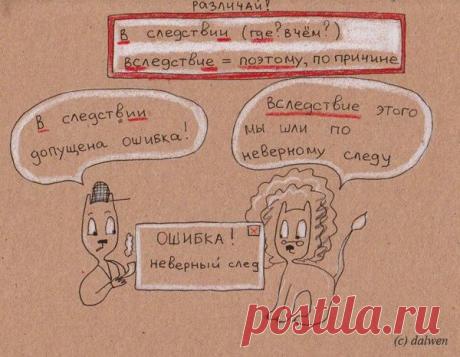 различай!
в следствии (где? в чём?)
вследствие = поэтому, по причине
В следствии
допущена ошибка!
Вследствие этого
мы шли по
неверному следу
ОШИБКА!
неверный след
postila.ru
(c) dalwen